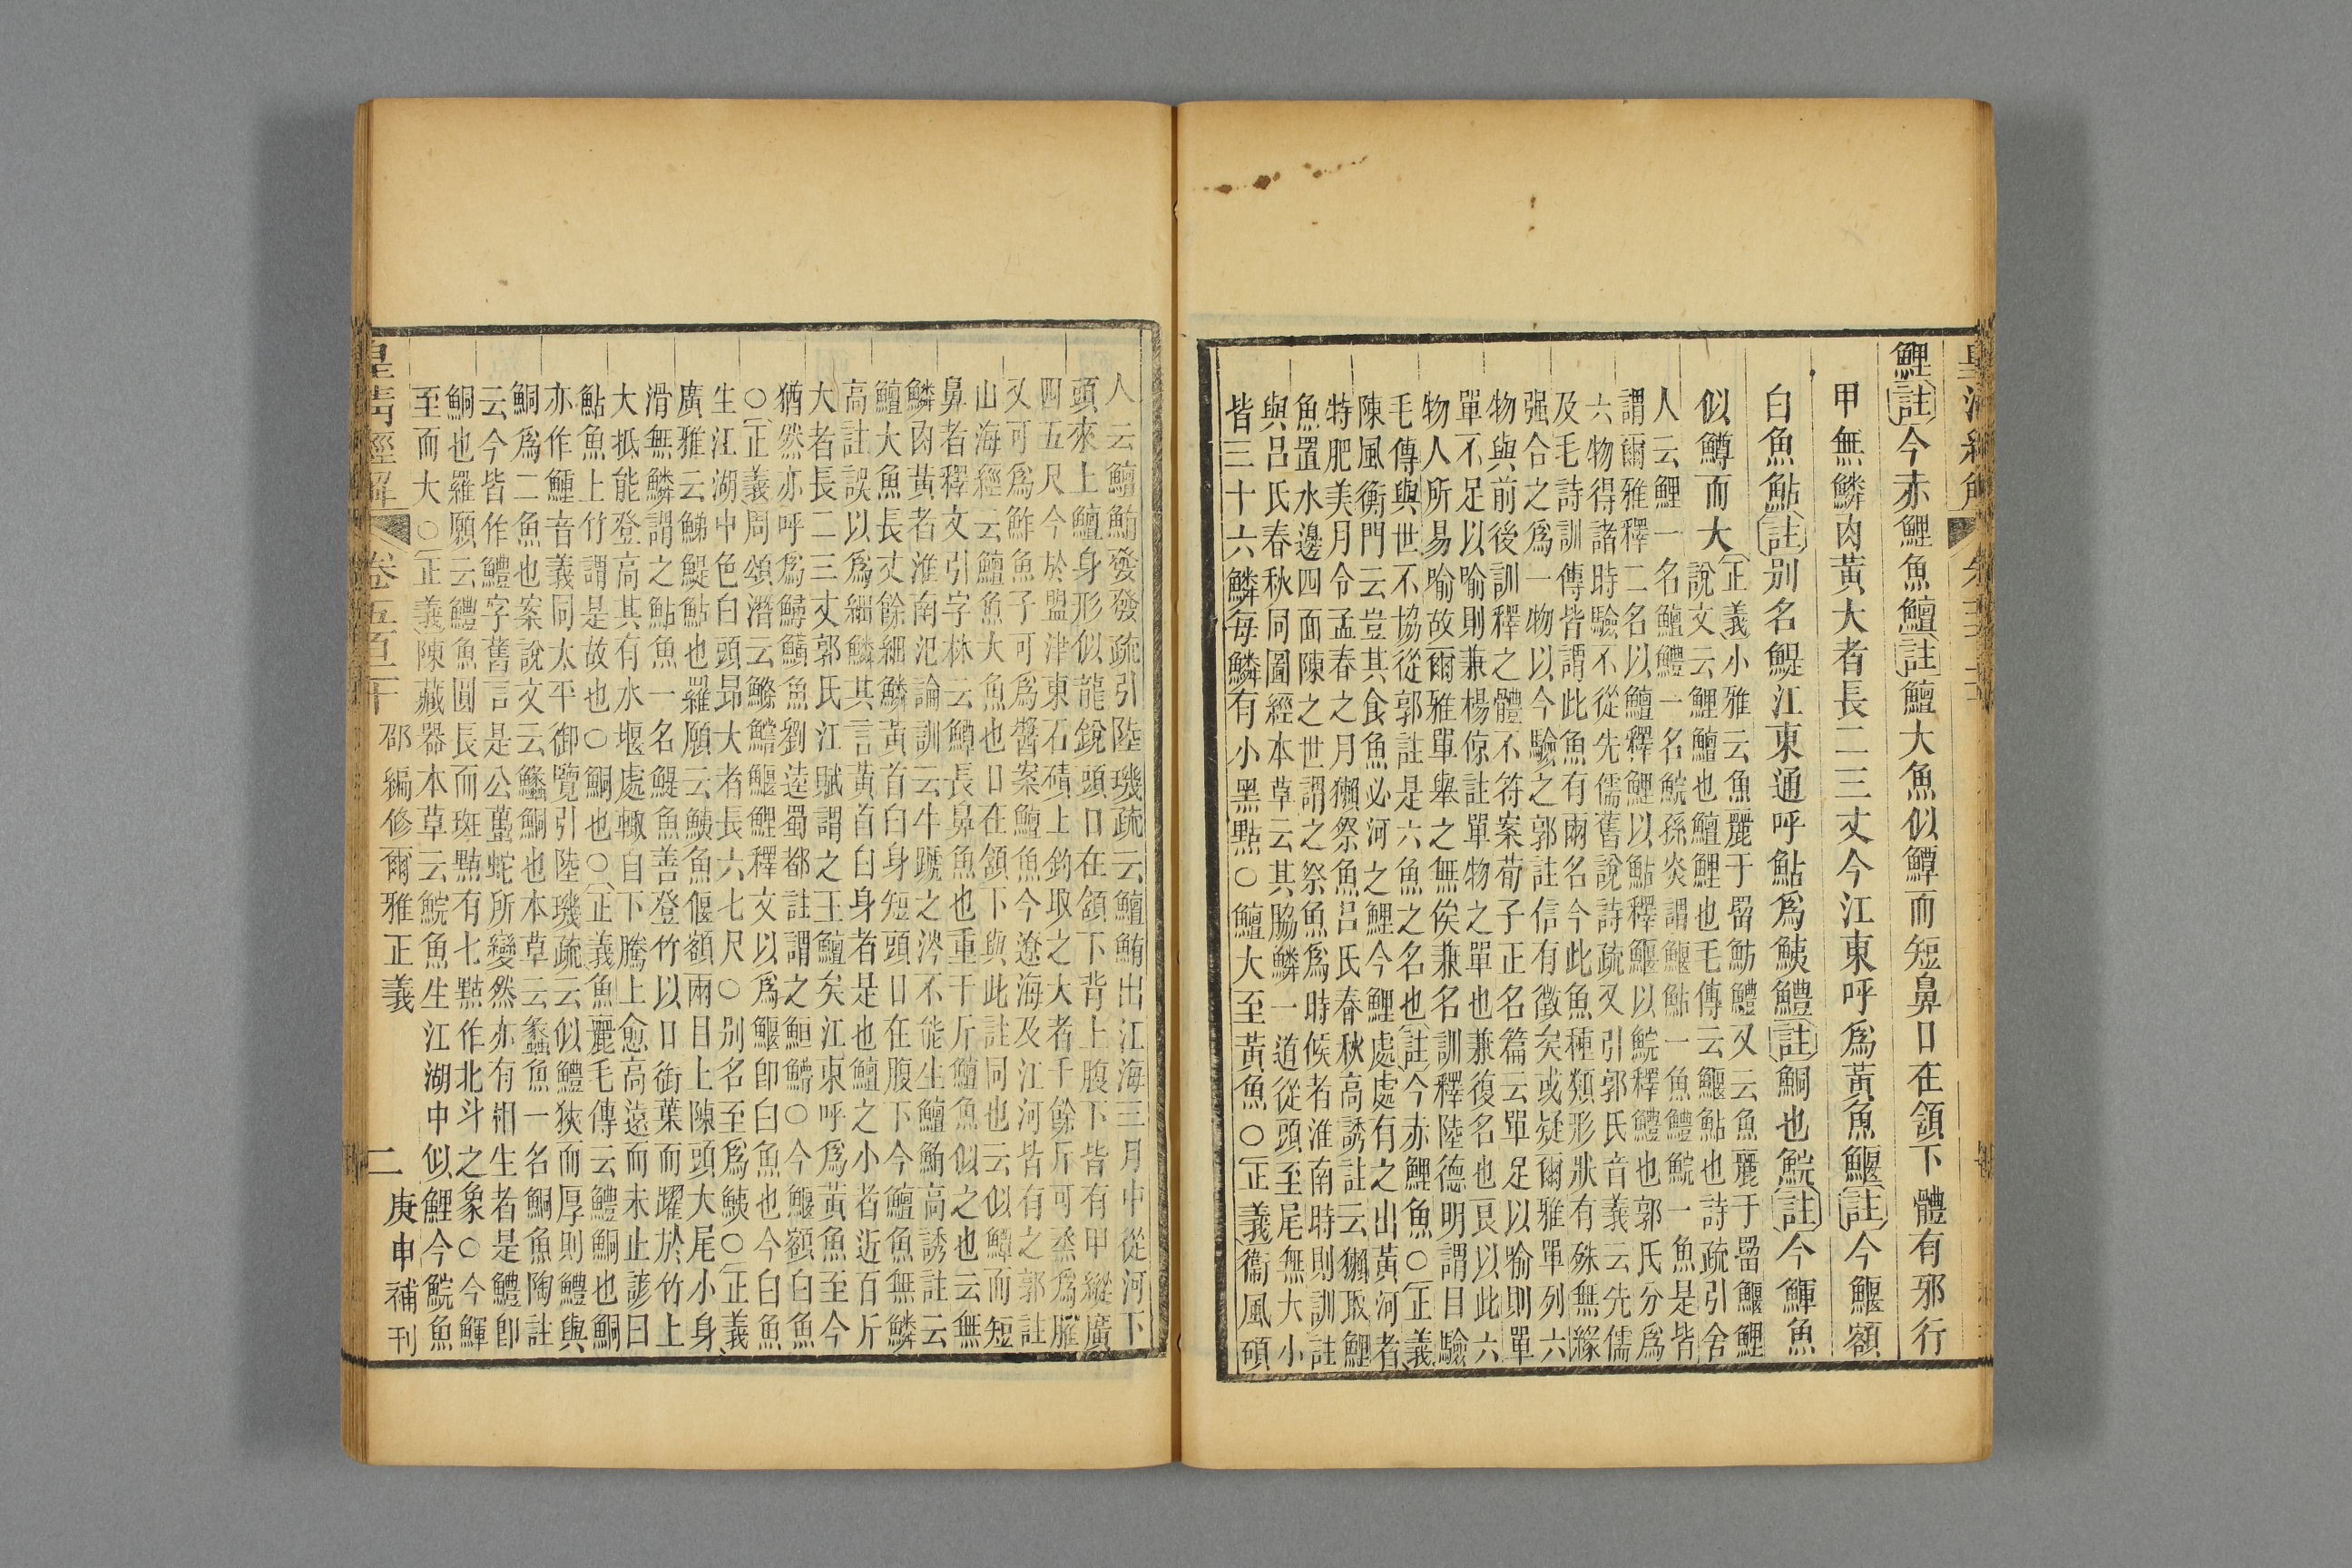 鯉註今赤鯉魚鱣註鱣大魚似鱏而短鼻口在頷下體有邪行
甲無鱗肉黃大者長二三丈今江東呼爲黃魚鰋註今鰋額
白魚鮎註別名鯷江東通呼鮎爲鮧鱧註鮦也鯇註今鯶魚
似鱒而大正義小雅云魚麗于罶魴鱧又云魚麗于罶鰋鯉
說文云鯉鱣也鱣鯉也毛傳云鰋鮎也詩疏引舍
人云鯉一名鱣鱧一名鯇孫炎謂鰋鮎一魚鱧鯇一魚是皆
謂爾雅釋二名以鱣釋鯉以鮎釋鰋以鯇釋鱧也郭氏分爲
六物得諸時驗不從先儒舊說詩疏又引郭氏音義云先儒
及毛詩訓傳皆謂此魚有兩名今此魚種類形狀有殊無緣
强合之爲一物以今驗之郭註信有徵矣或疑爾雅單列六
物與前後訓釋之體不符案荀子正名篇云單足以喻則單
單不足以喻則兼楊倞註單物之單也兼復名也艮以此六
物人所易喻故爾雅單舉之無俟兼名訓釋陸德明謂目驗
毛傳與世不協從郭註是六魚之名也註今赤鯉魚○正義
陳風衡門云豈其食魚必河之鯉今鯉處處有之出黃河者
特肥美月令孟春之月獺祭魚呂氏春秋高誘註云獺取鯉
魚置水邊四面陳之世謂之祭魚爲時候者淮南時則訓註
與呂氏春秋同圖經本草云其脇鱗一道從頭至尾無大小
皆三十六鱗每鱗有小黑點○鱣大至黃魚○正義衞風碩
人云鱣鮪發發疏引陸璣疏云鱣鮪出江海三月中從河下
頭來上鱣身形似龍銳頭口在頷下背上腹下皆有甲縱廣
四五尺今於盟津東石磧上釣取之大者千餘斤可蒸爲臛
又可爲鮓魚子可爲醬案鱣魚今遼海及江河皆有之郭註
山海經云鱣魚大魚也口在頷下與此註同也云似鱏而短
鼻者釋文引字林云鱏長鼻魚也重千斤鱣魚似之也云無
鱗肉黃者淮南氾論訓云牛蹏之涔不能生鱣鮪高誘註云
鱣大魚長丈餘細鱗黃首白身短頭口在腹下今鱣魚無鱗
高註誤以爲細鱗其言黃首白身者是也鱣之小者近百斤
大者長二三丈郭氏江賦謂之王鱣矣江東呼爲黃魚至今
猶然亦呼爲鱘鱑魚劉逵蜀都註謂之䱎鱛○今鰋額白魚
○正義周頌潛云鰷鱨鰋鯉釋文以爲鰋卽白魚也今白魚
生江湖中色白頭昻大者長六七尺○別名至爲鮧○正義
廣雅云鮷鯷鮎也羅願云鮧魚偃額兩目上陳頭大尾小身
滑無鱗謂之鮎魚一名鯷魚善登竹以口銜葉而躍於竹上
大抵能登高其有水堰處輙自下騰上愈高遠而未止諺曰
鮎魚上竹謂是故也○鮦也○正義魚麗毛傳云鱧鮦也鮦
亦作鱦音義同太平御覽引陸璣疏云似鱧狹而厚則鱧與
鮦爲二魚也案說文云鱶鮦也本草云蠡魚一名鮦魚陶註
云今皆作鱧字舊言是公蠣蛇所變然亦有相生者是鱧卽
鮦也羅願云鱧魚圓長而斑點有七點作北斗之象○今鯶
至而大○正義陳藏器本草云鯇魚生江湖中似鯉今鯇魚
皇清經解 卷五百二十 邵編修爾雅正義 二 庚申補刊